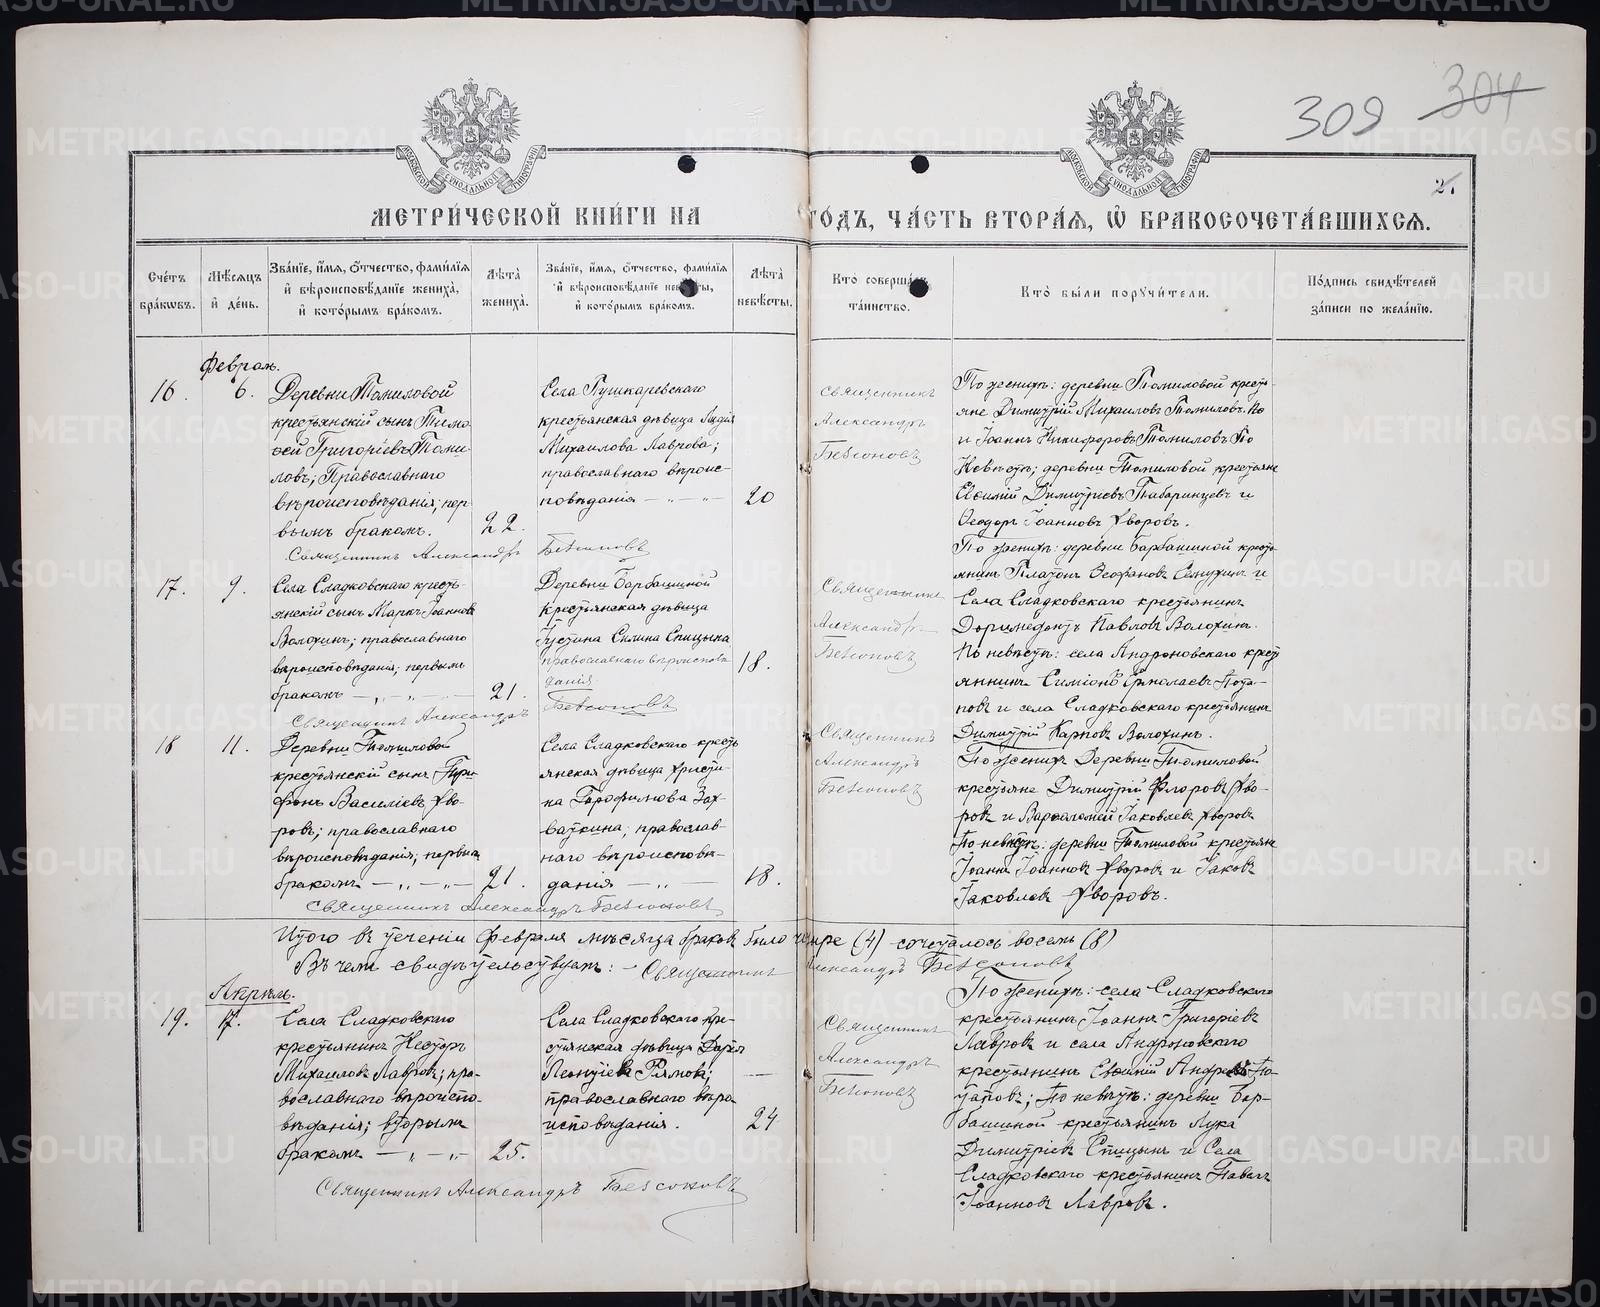 309 304
2.
МЕТРИ́ЧЕСКОЙ КНИ́ГИ НА ГО́ДЪ, ЧА́СТЬ ВТОРА́Я, Ѡ БРАКОСОЧЕТА́ВШИХСЯ.
Сче́тъ бра́кωвъ.
Мѣ́сяцъ и́ де́нь.
Зва́нїе, и́мя, о́тчество, фами́лїя и́ вѣроисповѣ́данїе жениха̀, и́ кото́рымъ бра́комъ.
Лѣ́та жениха̀.
Зва́нїе, и́мя, о́тчество, фами́лїя и́ вѣроисповѣ́данїе невѣ́сты, и́ кото́рымъ бра́комъ.
Лѣ́та невѣ́сты.
Кто̀ соверша́лъ та́инство.
Кто̀ бы́ли поручи́тели.
По́дпись свидѣ́телей за́писи по жела́нїю.
Февраль.
16. 6.
Деревни Томиловой
крестьянскій сынъ Тимо-
ѳей Григоріевъ Томи-
ловъ; Православнаго
вѣроисповѣданія; пер-
вымъ бракомъ.
22.
Села Пушкаревскаго
крестьянская дѣвица Лидія
Михаилова Лаврова;
православнаго вѣроис-
повѣданія — „ — „ —
20
Священникъ Александръ Безсоновъ
Священникъ
Александръ
Безсоновъ
По женихѣ: деревни Томиловой кресть-
яне Димитрій Михаиловъ Томиловъ
и Іоаннъ Никифоровъ Томиловъ По
Невѣстѣ; деревни Томиловой крестьяне
Евѳимій Димитріевъ Табаринцевъ и
Ѳеодоръ Іоанновъ Уворовъ.
17. 9.
Села Сладковскаго кресть-
янскій сынъ Маркъ Іоанновъ
Волохинъ; православнаго
вѣроисповѣданія; первымъ
бракомъ — „ — „ —
21.
Деревни Барбашиной
крестьянская дѣвица
Іустина Силина Спицына
православнаго вѣроисповѣ-
данія
18.
Священникъ Александръ Безсоновъ
Священникъ
Александръ
Безсоновъ
По женихѣ: деревни Барбашиной кресть-
янинъ Платонъ Ѳеофановъ Семухинъ и
Села Сладковскаго крестьянинъ
Доримедонтъ Павловъ Волохинъ.
По невѣстѣ: села Андроновскаго кресть-
янинъ Симіонъ Ермолаевъ Пота-
повъ и села Сладковскаго крестьянинъ
Димитрій Карповъ Волохинъ.
18 11.
Деревни Томиловой
крестьянскій сынъ Три-
фонъ Василіевъ Уво-
ровъ; православнаго
вѣроисповѣданія; первымъ
бракомъ — „ — „ —
21.
Села Сладковскаго кресть-
янская дѣвица Христи-
на Зах-
ваткина; православ-
наго вѣроисповѣ-
данія — „ —
18.
Священникъ Александръ Безсоновъ
Священникъ
Александръ
Безсоновъ
По женихѣ Деревни Томиловой
крестьяне Димитрій Флоровъ Уво-
ровъ и Варѳоломей Іаковлевъ Уворовъ
По невѣстѣ: деревни Томиловой крестьяне
Іоаннъ Іоанновъ Уворовъ и Іаковъ
Іаковлевъ Уворовъ.
Итого въ теченіи Февраля мѣсяца браковъ было четыре (4) сочеталось восемь (8)
Въ чемъ свидѣтельствуетъ: — Священникъ Александръ Безсоновъ
Апрѣль.
19. 17.
Села Сладковскаго
крестьянинъ Несторъ
Михаиловъ Лавровъ; пра-
вославнаго вѣроиспо-
вѣданія; вторымъ
бракомъ — „ — „ —
25.
Села Сладковскаго кре-
стьянская дѣвица Дарья
Леонтіева Рямова;
православнаго вѣро-
исповѣданія.
—
24
Священникъ Александръ Безсоновъ
Священникъ
Александръ
Безсоновъ
По женихѣ: села Сладковскаго
крестьянинъ Іоаннъ Григоріевъ
Лавровъ и села Андроновскаго
крестьянинъ Евѳимій Андреевъ По-
таповъ; По невѣстѣ: деревни Бар-
башиной крестьянинъ Лука
Димитріевъ Спицынъ и Села
Сладковскаго крестьянинъ Павелъ
Іоанновъ Лавровъ.
METRIKI.GASO-URAL.RU